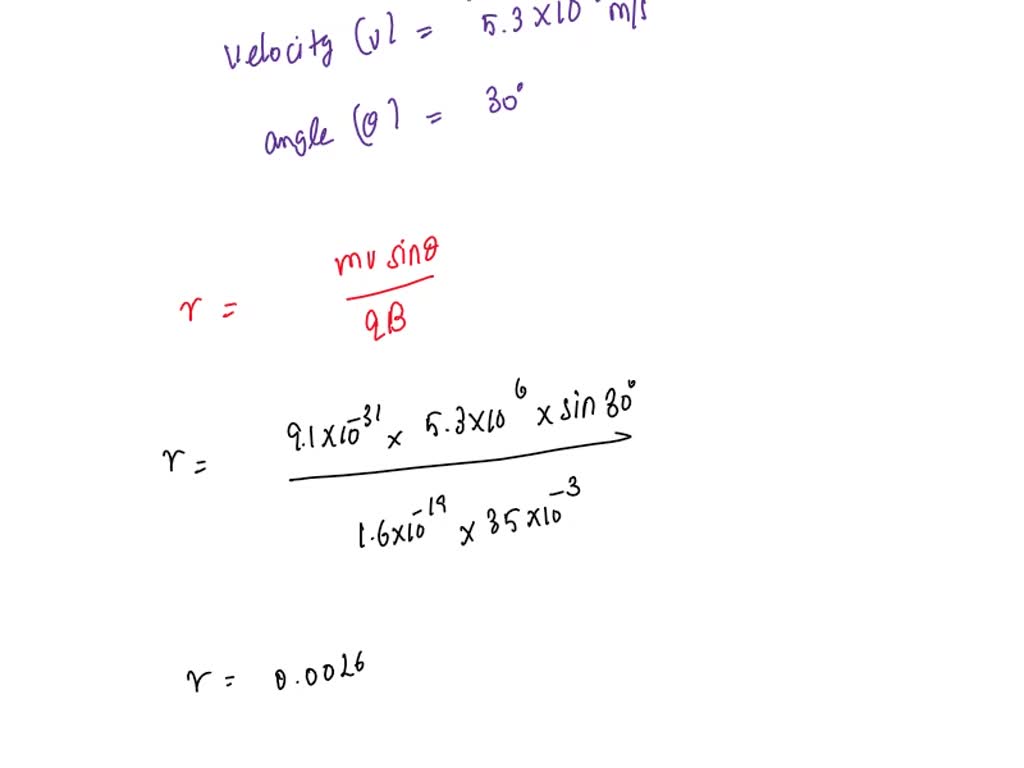 velocity (v) = 5.3 × 10 m/s
angle (θ) = 30°
r = mv sinθ / qB
r = 9.1×10⁻³¹ × 5.3×10⁶ × sin 30° / 1.6×10⁻¹⁹ × 35×10⁻³
r = 0.0026